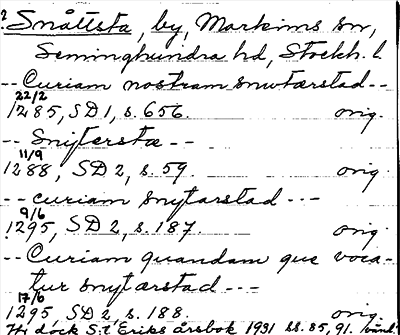 ? Snåttsta, by, Markims sn,
Seminghundra hd, Stockh. l.
-- Curiam nostram snwtærstad --
22/2
1285, SD 1, s. 656. orig.
-- Snijterstæ --
11/9
1288, SD 2, s. 59. orig.
-- curiam snytarstad --
9/6
1295, SD 2, s. 187. orig.
-- Curiam quandam que voca-
tur snytærstad --
17/6
1295, SD 2, s. 188. orig.
Hi dock S:t Eriks årsbok 1931 ss. 85, 91.